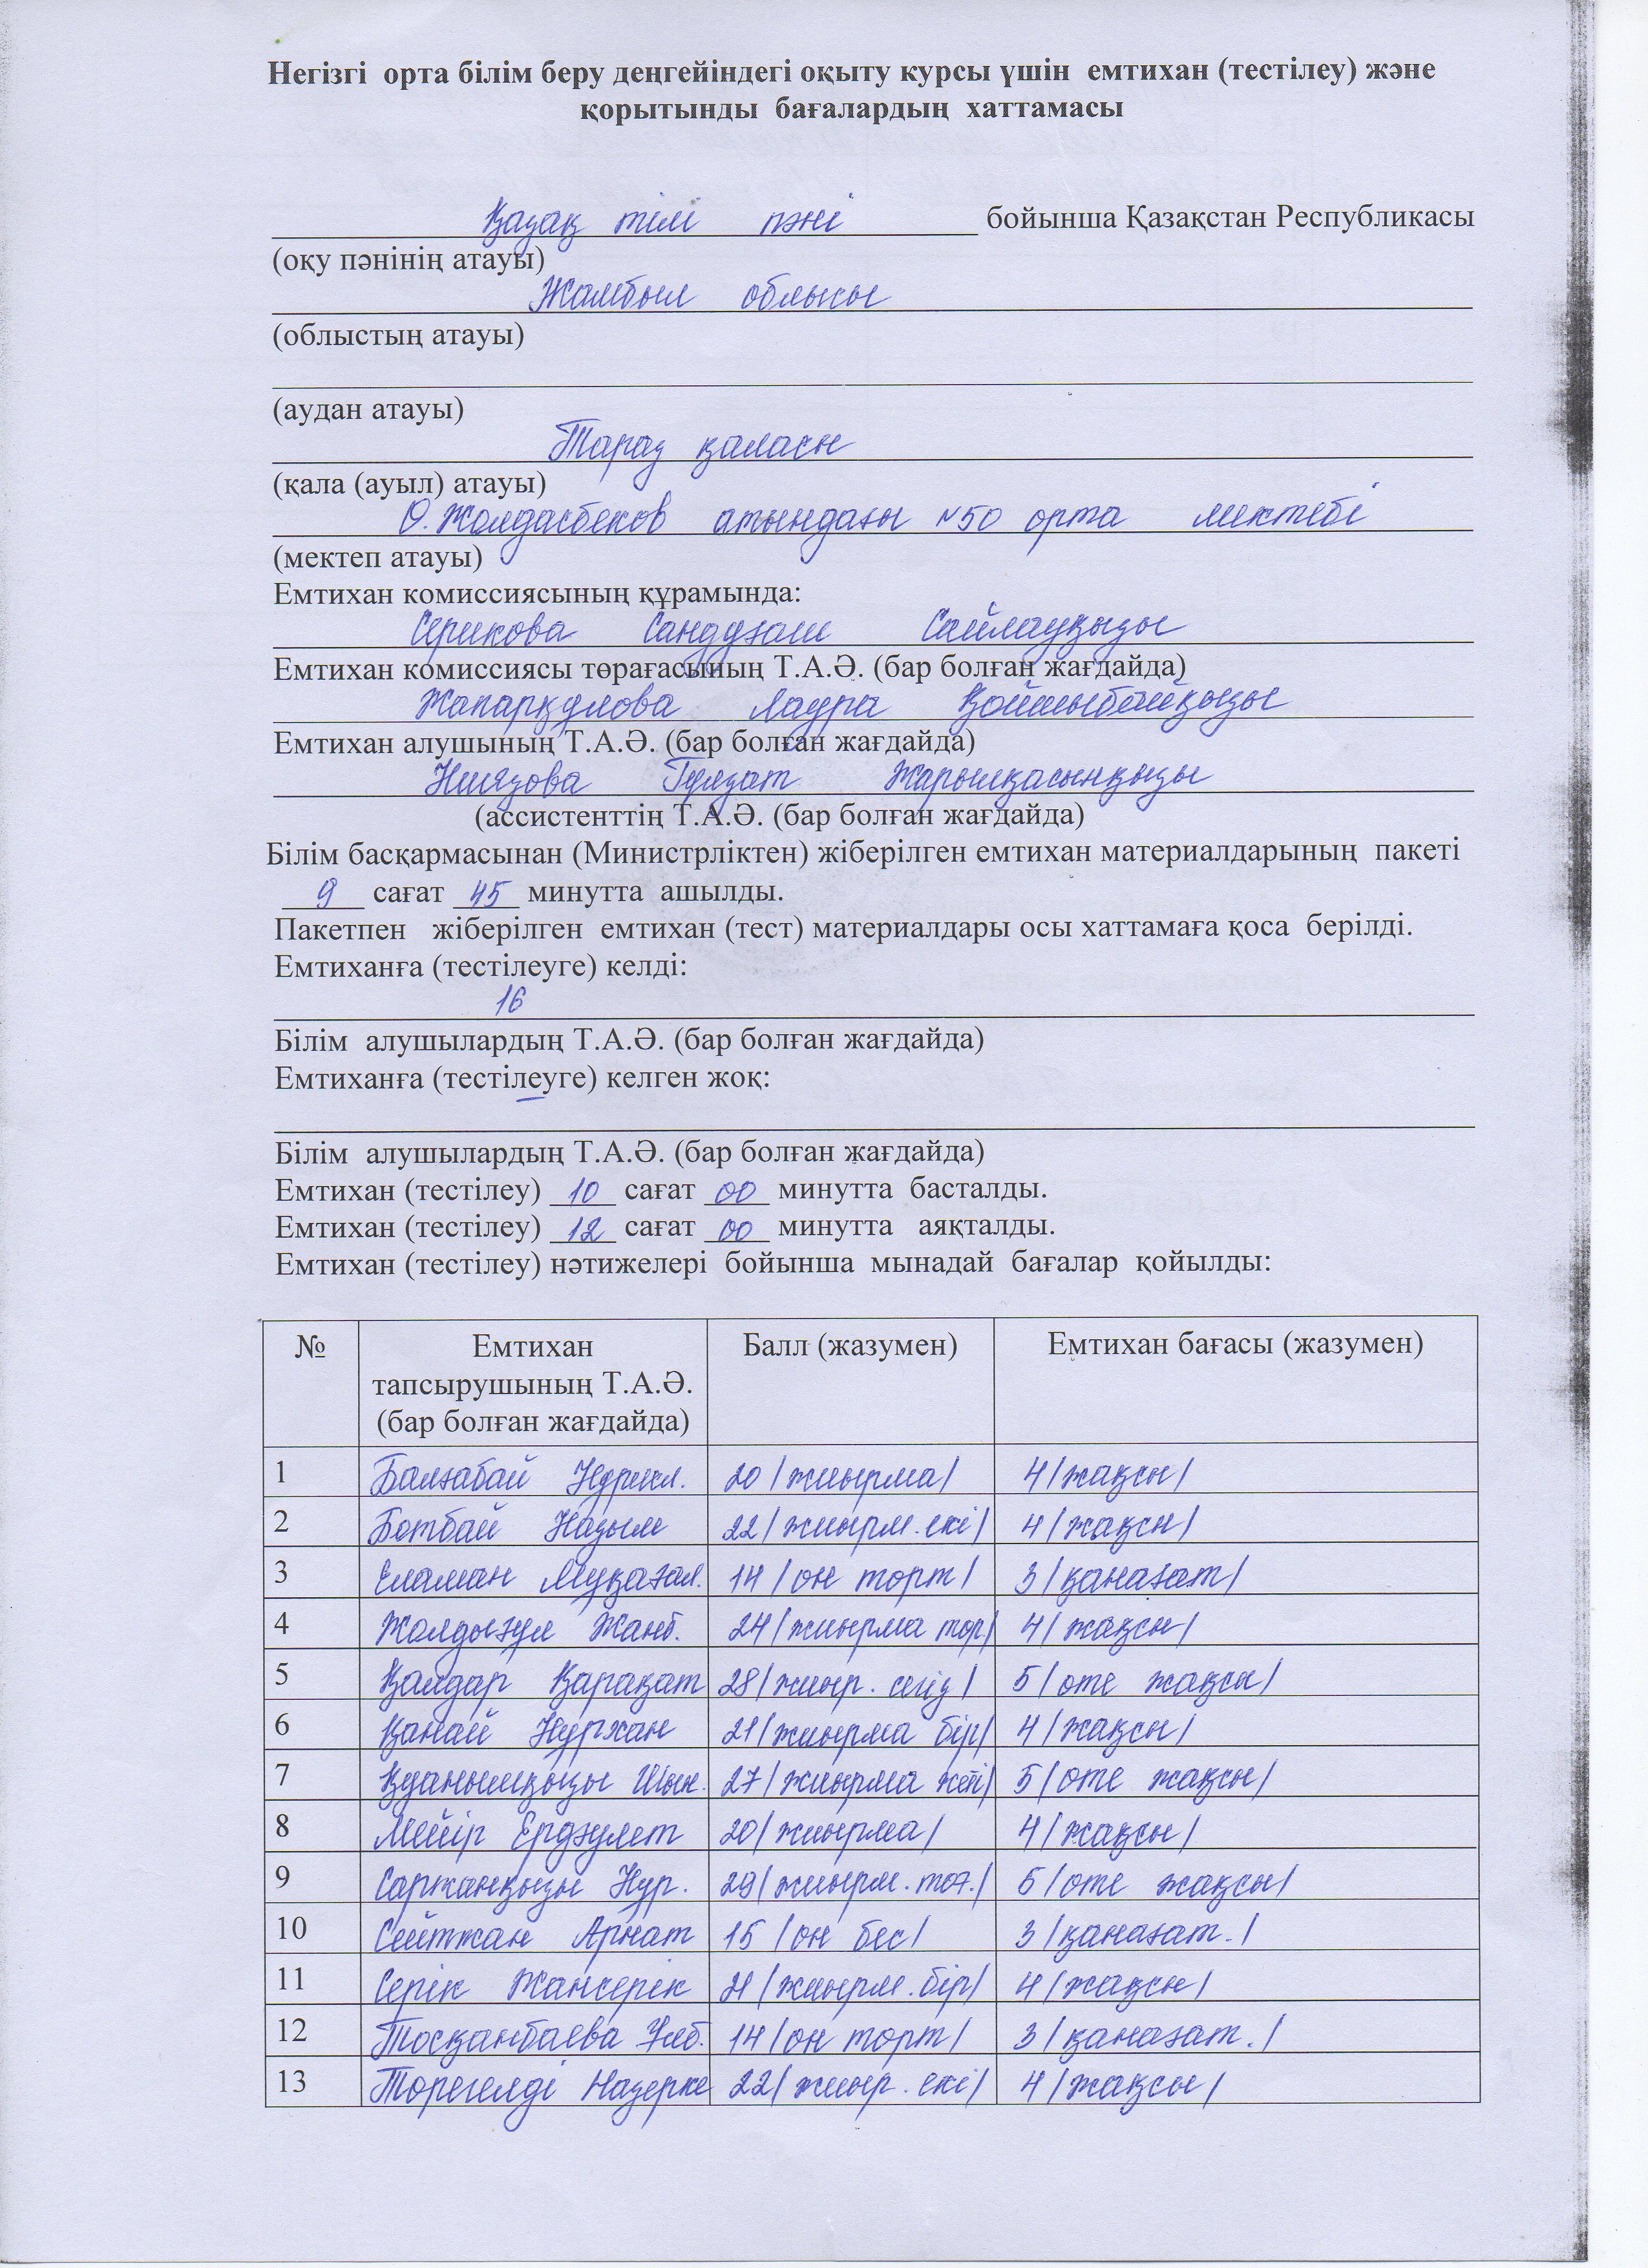 Негізгі орта білім беру деңгейіндегі оқыту курсы үшін емтихан (тестілеу) және
қорытынды бағалардың хаттамасы
Қазақ тілі пәні бойынша Қазақстан Республикасы
(оқу пәнінің атауы)
Жамбыл облысы
(облыстың атауы)
(аудан атауы)
Тараз қаласы
(қала (ауыл) атауы)
Ө.Жолдасбеков атындағы №50 орта мектебі
(мектеп атауы)
Емтихан комиссиясының құрамында:
Серикова Сандуғаш Сайлауқызы
Емтихан комиссиясы төрағасының Т.А.Ә. (бар болған жағдайда)
Жапарқулова Лаура Қойшыбайқызы
Емтихан алушының Т.А.Ә. (бар болған жағдайда)
Ниязова Гулзат Жарылқасынқызы
(ассистенттің Т.А.Ә. (бар болған жағдайда)
Білім басқармасынан (Министрліктен) жіберілген емтихан материалдарының пакеті
9 сағат 45 минутта ашылды.
Пакетпен жіберілген емтихан (тест) материалдары осы хаттамаға қоса берілді.
Емтиханға (тестілеуге) келді:
16
Білім алушылардың Т.А.Ә. (бар болған жағдайда)
Емтиханға (тестілеуге) келген жоқ:
—
Білім алушылардың Т.А.Ә. (бар болған жағдайда)
Емтихан (тестілеу) 10 сағат 00 минутта басталды.
Емтихан (тестілеу) 12 сағат 00 минутта аяқталды.
Емтихан (тестілеу) нәтижелері бойынша мынадай бағалар қойылды:
№ Емтихан тапсырушының Т.А.Ә. (бар болған жағдайда) Балл (жазумен) Емтихан бағасы (жазумен)
1 Балғабай Нұрикл. 20 /жиырма/ 4 /жақсы/
2 Ботбай Назым 22 /жиырм.екі/ 4 /жақсы/
3 Еламан Мұқағал. 14 /он төрт/ 3 /қанағат/
4 Жолдығұл Жанб. 24 /жиырма төр/ 4 /жақсы/
5 Қалдар Қарақат 28 /жиыр. сегіз/ 5 /өте жақсы/
6 Қанай Нұрхан 21 /жиырма бір/ 4 /жақсы/
7 Қуанышқызы Шын. 27 /жиырма жеті/ 5 /өте жақсы/
8 Мейір Ердәулет 20 /жиырма/ 4 /жақсы/
9 Саржанқызы Нұр. 29 /жиырм.тоғ./ 5 /өте жақсы/
10 Сейтжан Арнат 15 /он бес/ 3 /қанағат./
11 Серік Жансерік 21 /жиырм.бір/ 4 /жақсы/
12 Тосқанбаева Ұлб. 14 /он төрт/ 3 /қанағат./
13 Төрегелді Назерке 22 /жиыр. екі/ 4 /жақсы/